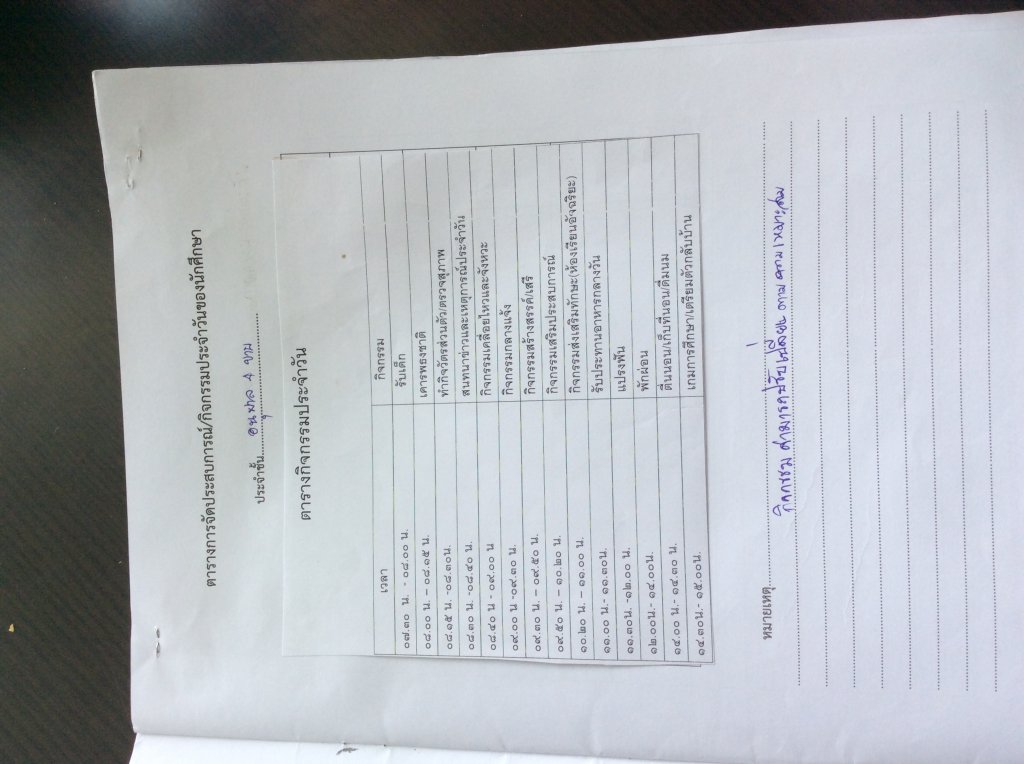 ตารางการจัดประสบการณ์/กิจกรรมประจำวันของนักศึกษา
ประจำชั้น อนุบาล ๔ ขวบ
ตารางกิจกรรมประจำวัน
เวลา กิจกรรม
๐๗.๓๐ น. - ๐๘.๐๐ น. รับเด็ก
๐๘.๐๐ น. – ๐๘.๑๕ น. เคารพธงชาติ
๐๘.๑๕ น. -๐๘.๓๐น. ทำกิจวัตรส่วนตัว/ตรวจสุภาพ
๐๘.๓๐ น. -๐๘.๔๐ น. สนทนาข่าวและเหตุการณ์ประจำวัน
๐๘.๔๐ น - ๐๙.๐๐ น กิจกรรมเคลื่อยไหวและจังหวะ
๐๙.๐๐ น -๐๙.๓๐ น. กิจกรรมกลางแจ้ง
๐๙.๓๐ น. – ๐๙.๕๐ น. กิจกรรมสร้างสรรค์/เสรี
๐๙.๕๐ น. – ๑๐.๒๐ น. กิจกรรมเสริมประสบการณ์
๑๐.๒๐ น. – ๑๑.๐๐ น. กิจกรรมส่งเสริมทักษะ(ห้องเรียนอัจฉริยะ)
๑๑.๐๐ น.- ๑๑.๓๐น. รับประทานอาหารกลางวัน
๑๑.๓๐น. -๑๒.๐๐ น. แปรงฟัน
๑๒.๐๐น.- ๑๔.๐๐น. พักผ่อน
๑๔.๐๐ น.- ๑๔.๓๐ น. ตื่นนอน/เก็บที่นอน/ดื่มนม
๑๔.๓๐น.- ๑๕.๐๐น. เกมการศึกษา/เตรียมตัวกลับบ้าน
หมายเหตุ
กิจกรรม สามารถปรับเปลี่ยน ตาม ความเหมาะสม